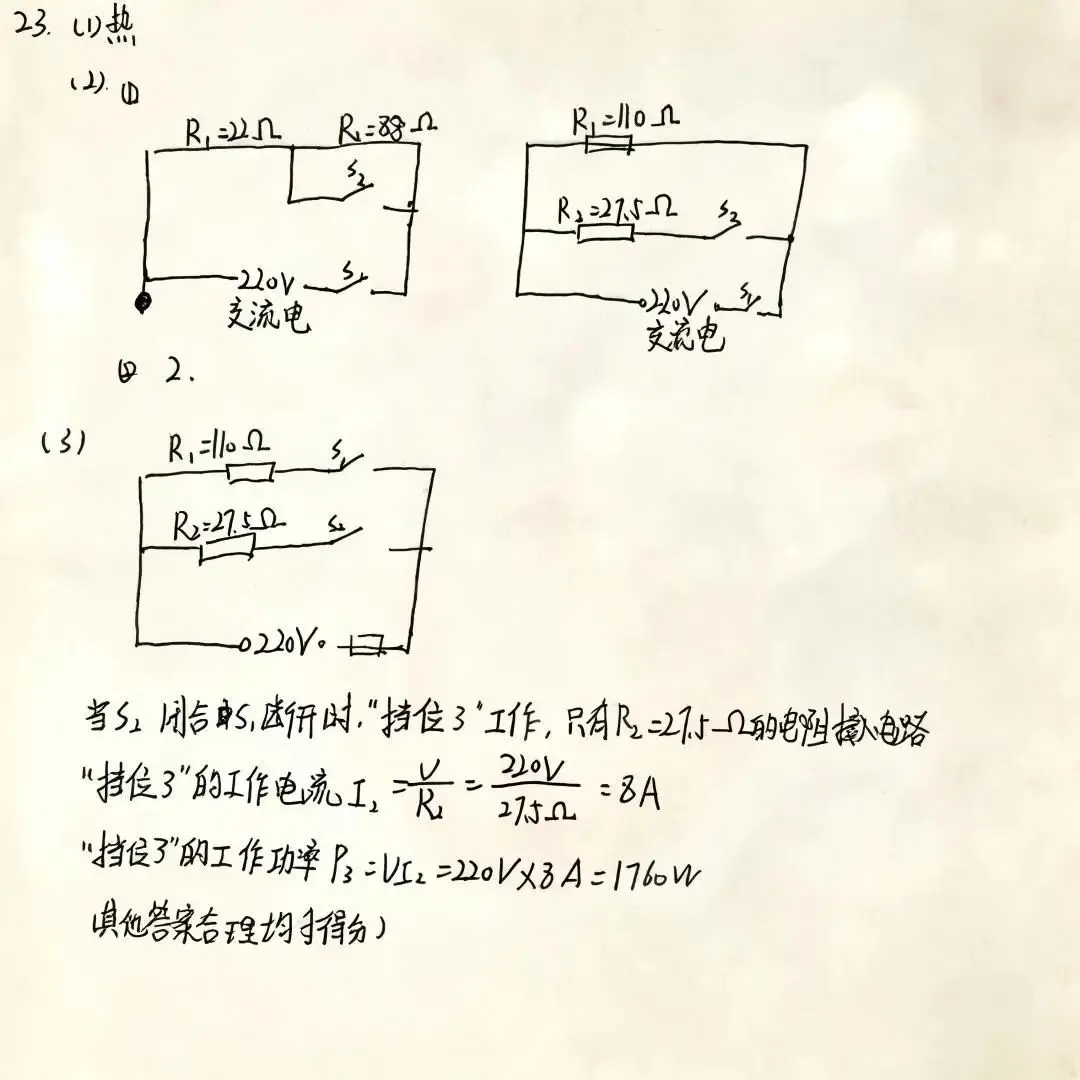 23. (1)热
(2). ①
R₁=22Ω R₁=88Ω
S₂
220V S₁
交流电
R₁=110Ω
R₂=27.5Ω S₂
220V S₁
交流电
② 2.
(3)
R₁=110Ω S₁
R₂=27.5Ω S₂
220V
当S₂闭合S₁断开时,"挡位3"工作,只有R₂=27.5Ω的电阻接入电路
"挡位3"的工作电流I₂=U/R₂=220V/27.5Ω=8A
"挡位3"的工作功率P₃=UI₂=220V×8A=1760W
其他答案合理均可得分)